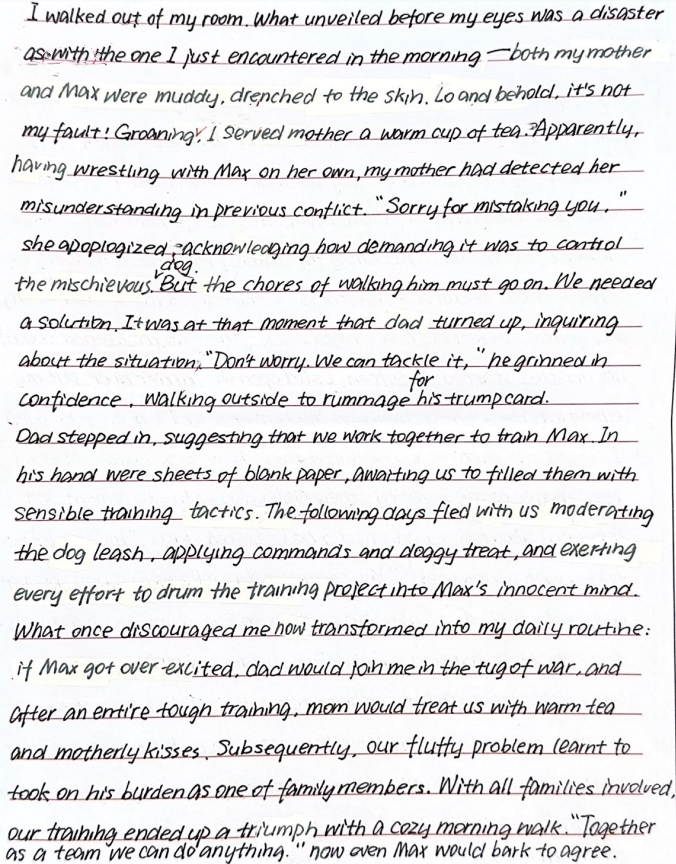 I walked out of my room. What unveiled before my eyes was a disaster
as with the one I just encountered in the morning — both my mother
and Max were muddy, drenched to the skin. Lo and behold, it's not
my fault! Groaning, I served mother a warm cup of tea. Apparently,
having wrestling with Max on her own, my mother had detected her
misunderstanding in previous conflict. "Sorry for mistaking you,"
she apoplogized, acknowledging how demanding it was to control
the mischievous dog. But the chores of walking him must go on. We needed
a solution. It was at that moment that dad turned up, inquiring
about the situation, "Don't worry. We can tackle it," he grinned in
confidence, walking outside to rummage for his trump card.
Dad stepped in, suggesting that we work together to train Max. In
his hand were sheets of blank paper, awaiting us to filled them with
sensible training tactics. The following days fled with us moderating
the dog leash, applying commands and doggy treat, and exerting
every effort to drum the training project into Max's innocent mind.
What once discouraged me now transformed into my daily routine:
if Max got over-excited, dad would join me in the tug of war, and
after an entire tough training, mom would treat us with warm tea
and motherly kisses. Subsequently, our fluffy problem learnt to
took on his burden as one of family members. With all families involved,
our training ended up a triumph with a cozy morning walk. "Together
as a team we can do anything." now even Max would bark to agree.